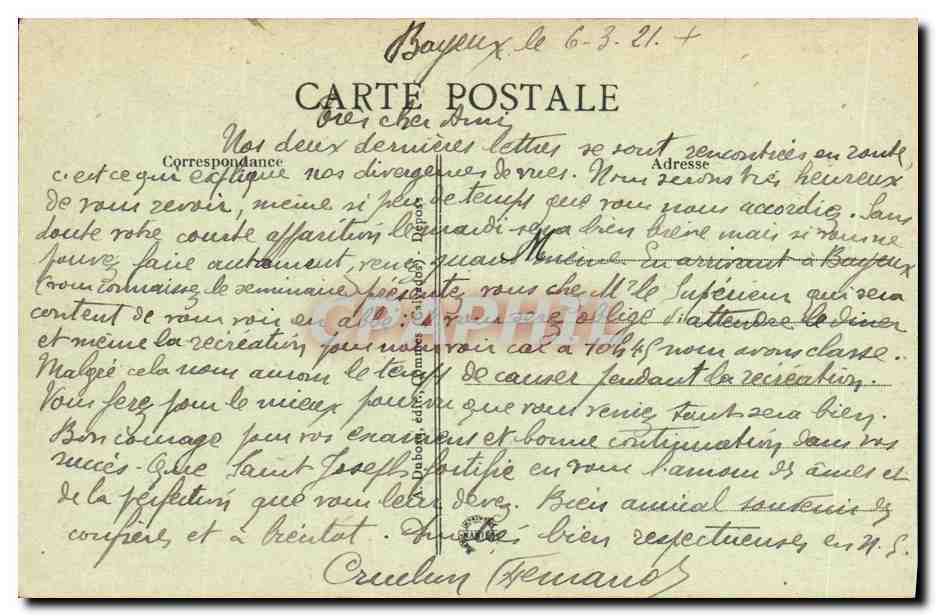 Bayeux le 6-3-21 +
CARTE POSTALE
Très cher Ami
Nos deux dernières lettres se sont rencontrées en route,
Correspondance
Adresse
c'est ce qui explique nos divergences de vues. Nous serons très heureux
de vous revoir, même si peu de temps que vous nous accordiez. Sans
doute votre courte apparition le mardi sera bien brève mais si vous ne
pouvez faire autrement, venez quand même. En arrivant à Bayeux
(vous connaissez le séminaire) présentez vous chez Mr le Supérieur qui sera
content de vous voir en abbé: vous serez obligé d'attendre le dîner
et même la récréation pour nous voir car à 10h45 nous avons classe.
Malgré cela nous aurons le temps de causer pendant la récréation.
Vous ferez pour le mieux pourvu que vous veniez tout sera bien.
Bon courage pour vos examens et bonne continuation dans vos
succès. Que Saint Joseph fortifie en vous l'amour des âmes et
de la perfection que vous leur devez. Bien amical souvenir des
confrères et à bientôt. bien respectueuses en N. S.
Fernand
A. Dubosq, édit., Commes (Calvados) Déposé
CPAPHIL